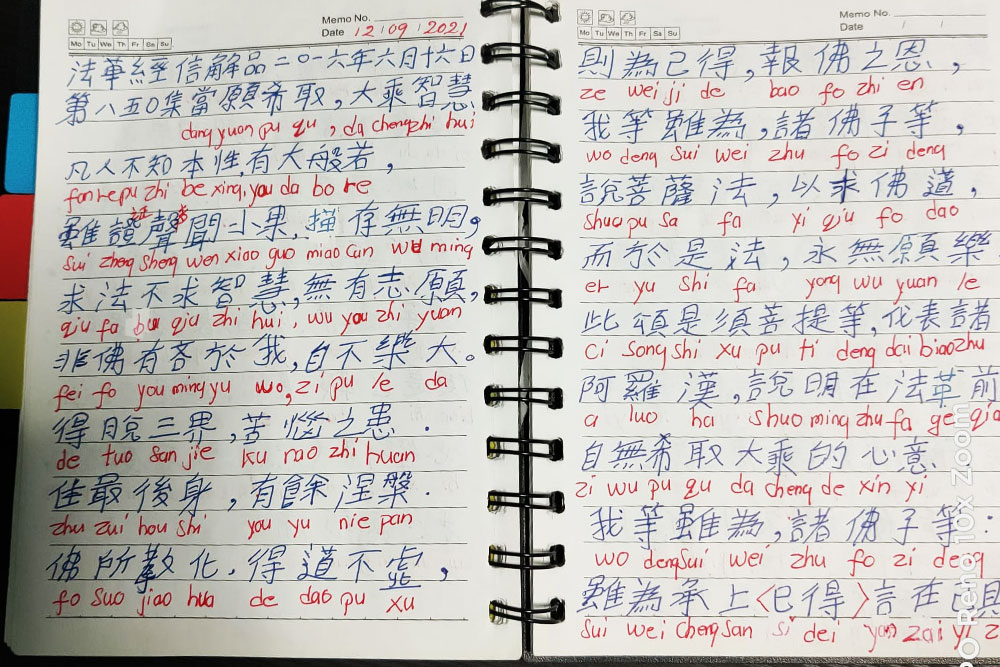 Memo No.
Date 12/09/2021
Mo Tu We Th Fr Sa Su
法華經信解品二〇一六年六月十六日
第八五〇集當願希取，大乘智慧
dang yuan pu qu , da cheng zhi hui
凡人不知本性，有大般若，
fan re pu zhi be xing, you da bo re
雖證聲聞小果，猶存無明，
sui zheng sheng wen xiao guo miao cun wu ming
求法不求智慧，無有志願，
qiu fa bu qiu zhi hui , wu you zhi yuan
非佛有吝於我，自不樂大。
fei fo you ming yu wo, zi pu le da
得脫三界，苦惱之患．
de tuo san jie ku nao zhi huan
住最後身，有餘涅槃．
zhu zui hou shi you yu nie pan
佛所教化．得道不虛，
fo suo jiao hua de dao pu xu
Memo No.
Date / /
Mo Tu We Th Fr Sa Su
則為已得，報佛之恩，
ze wei ji de bao fo zhi en
我等雖為，諸佛子等，
wo deng sui wei zhu fo zi deng
說菩薩法，以求佛道，
shuo pu sa fa yi qiu fo dao
而於是法，永無願樂
er yu shi fa yong wu yuan le
此頌是須菩提等，代表諸
ci song shi xu pu ti deng dai biao zhu
阿羅漢，說明在法華前
a luo han shuo ming zhu fa ge qia
自無希取大乘的心意
zi wu pu qu da cheng de xin yi
我等雖為，諸佛子等：
wo deng sui wei zhu fo zi deng
雖為承上〈已得〉言在已
sui wei cheng san si dei yan zai yi z
O Reno 10x Zoom